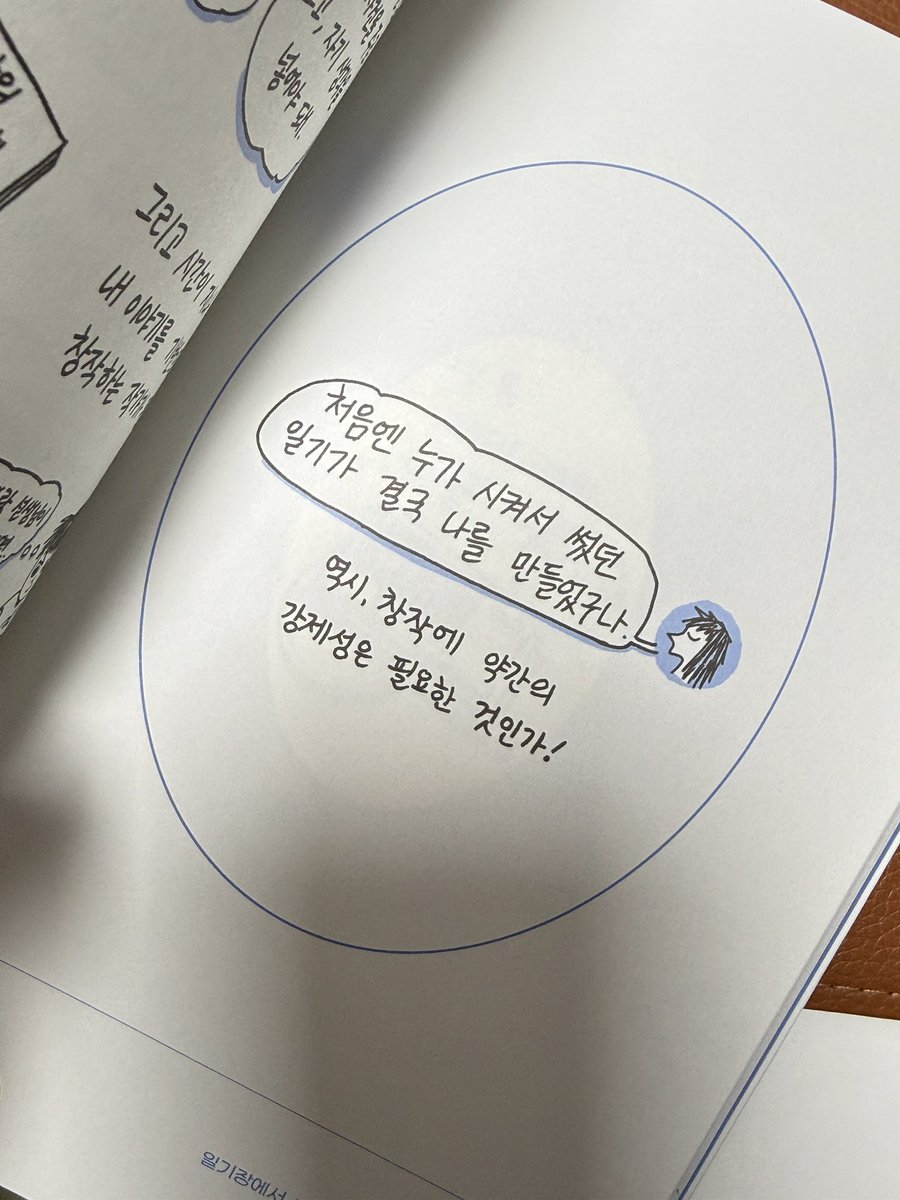 자기
넣어야 돼.
그리고 시간이
내 이야기를
창작하는
처음엔 누가 시켜서 썼던
일기가 결국 나를 만들었구나.
역시, 창작에 약간의
강제성은 필요한 것인가!
일기장에서